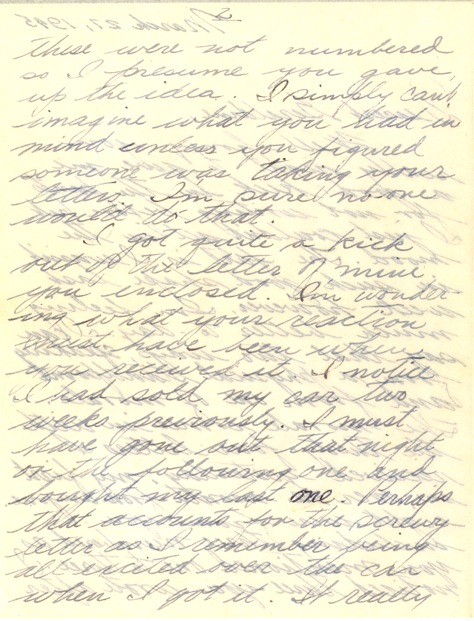 2
these were not numbered
so I presume you gave
up the idea. I simply can't
imagine what you had in
mind unless you figured
someone was taking your
letters. I'm sure no one
would do that.
I got quite a kick
out of the letter of mine
you enclosed. I'm wonder-
ing what your reaction
must have been when
you received it. I notice
I had sold my car two
weeks previously. I must
have gone out that night
or the following one and
bought my last one. Perhaps
that accounts for the screwy
letter as I remember being
all excited over the car
when I got it. It really